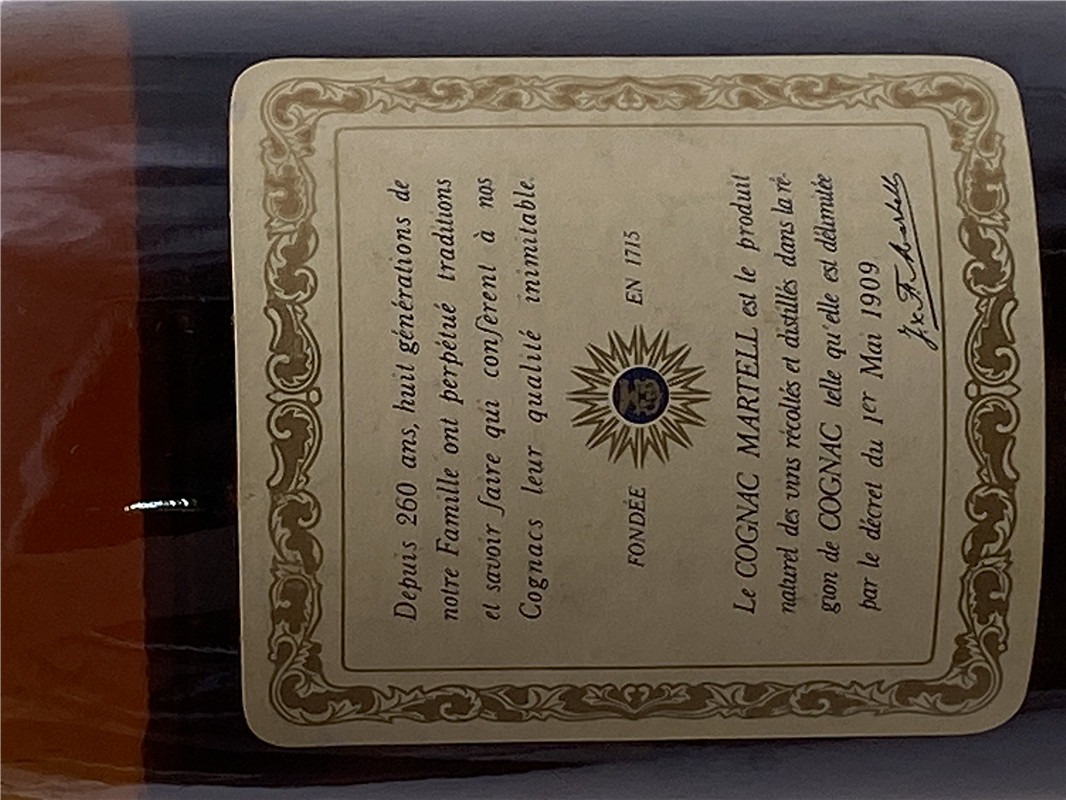 Depuis 260 ans, huit générations de
notre Famille ont perpétué traditions
et savoir faire qui confèrent à nos
Cognacs leur qualité inimitable.
FONDÉE EN 1715
Le COGNAC MARTELL est le produit
naturel des vins récoltés et distillés dans la ré-
gion de COGNAC telle qu'elle est délimitée
par le décret du 1er Mai 1909